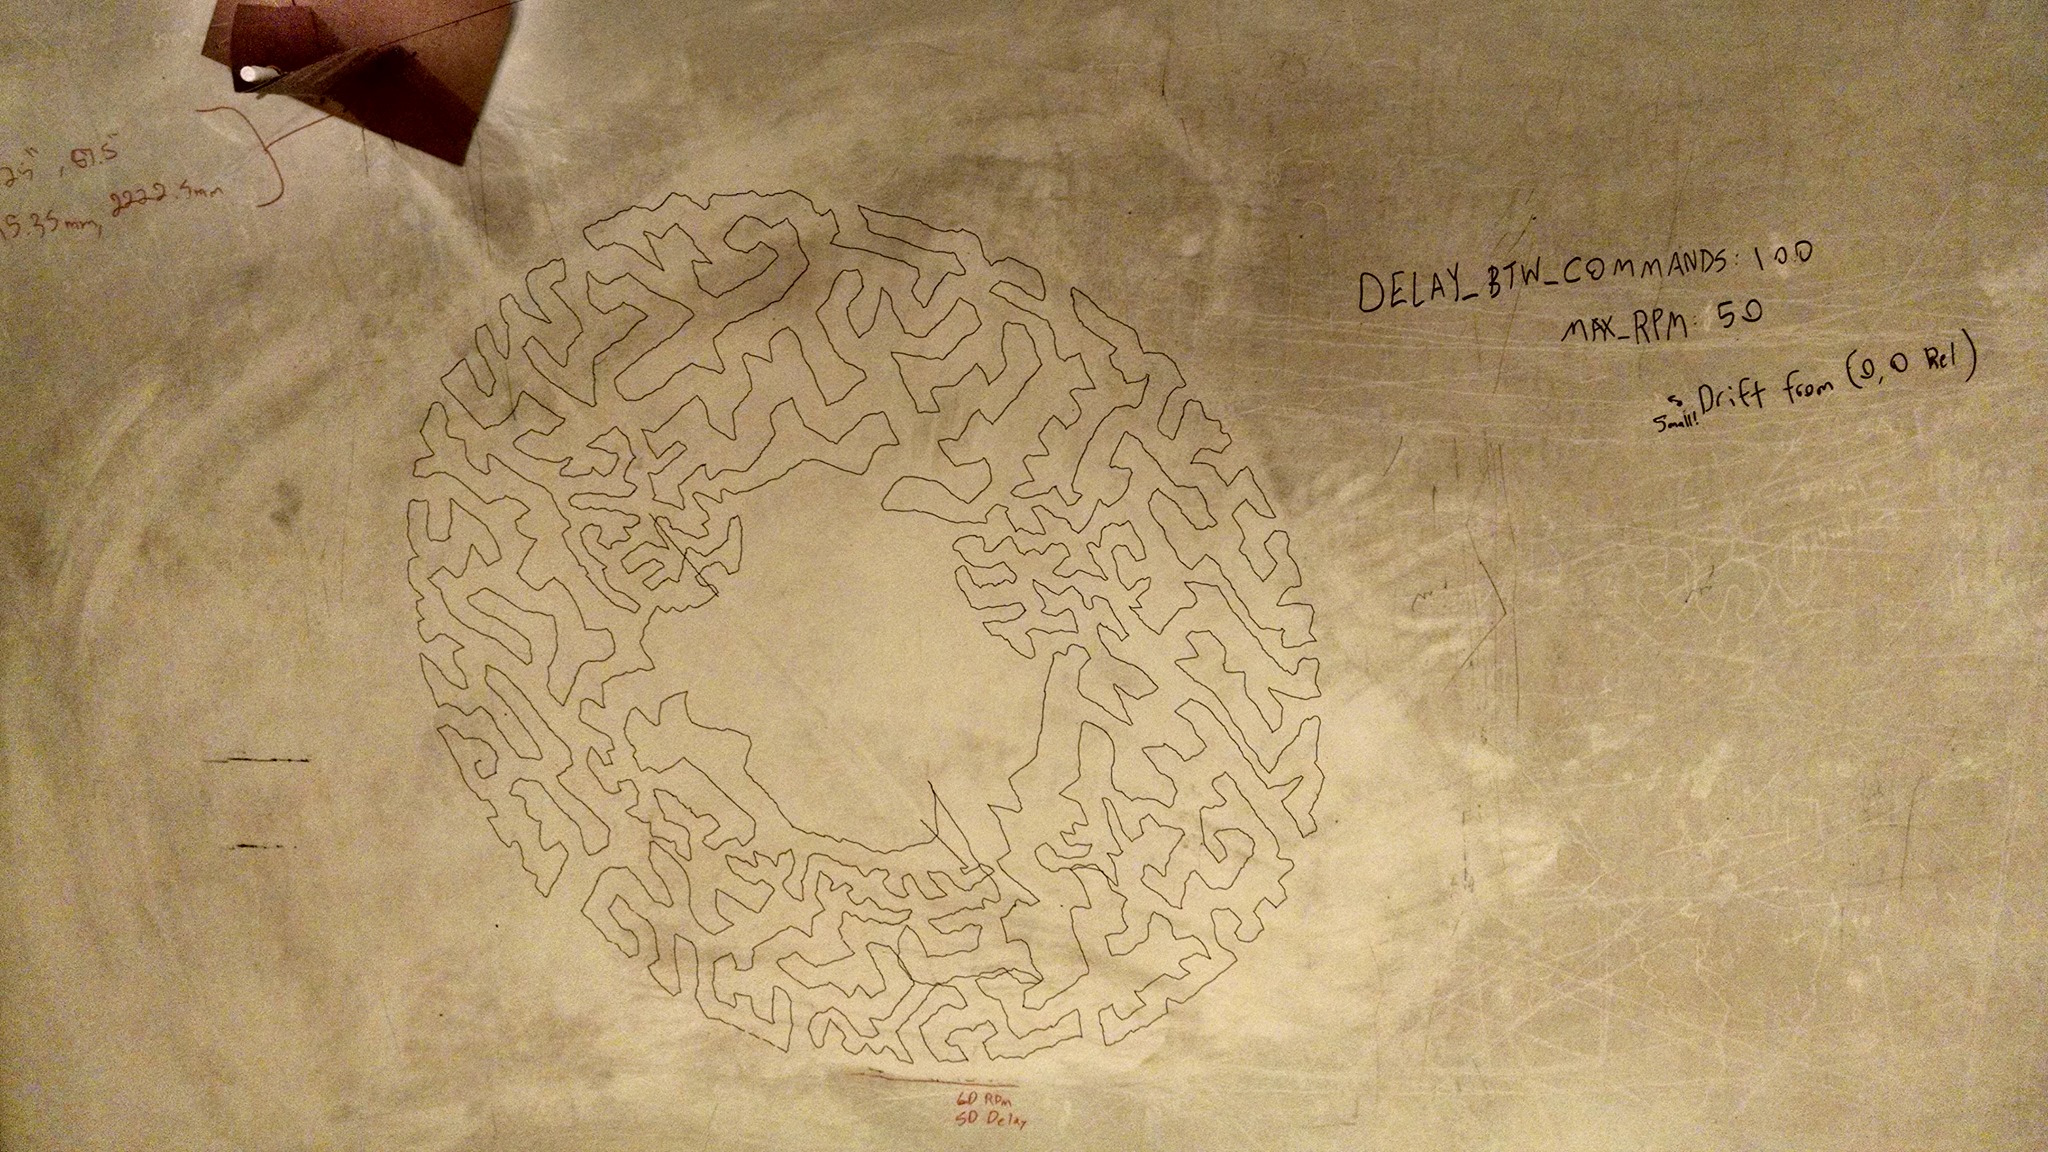 25", 87.5
15.35mm, 2222.5mm
DELAY_BTW_COMMANDS: 100
MAX_RPM: 50
Small! Drift from (0,0 Rel)
60 RPM
50 Delay